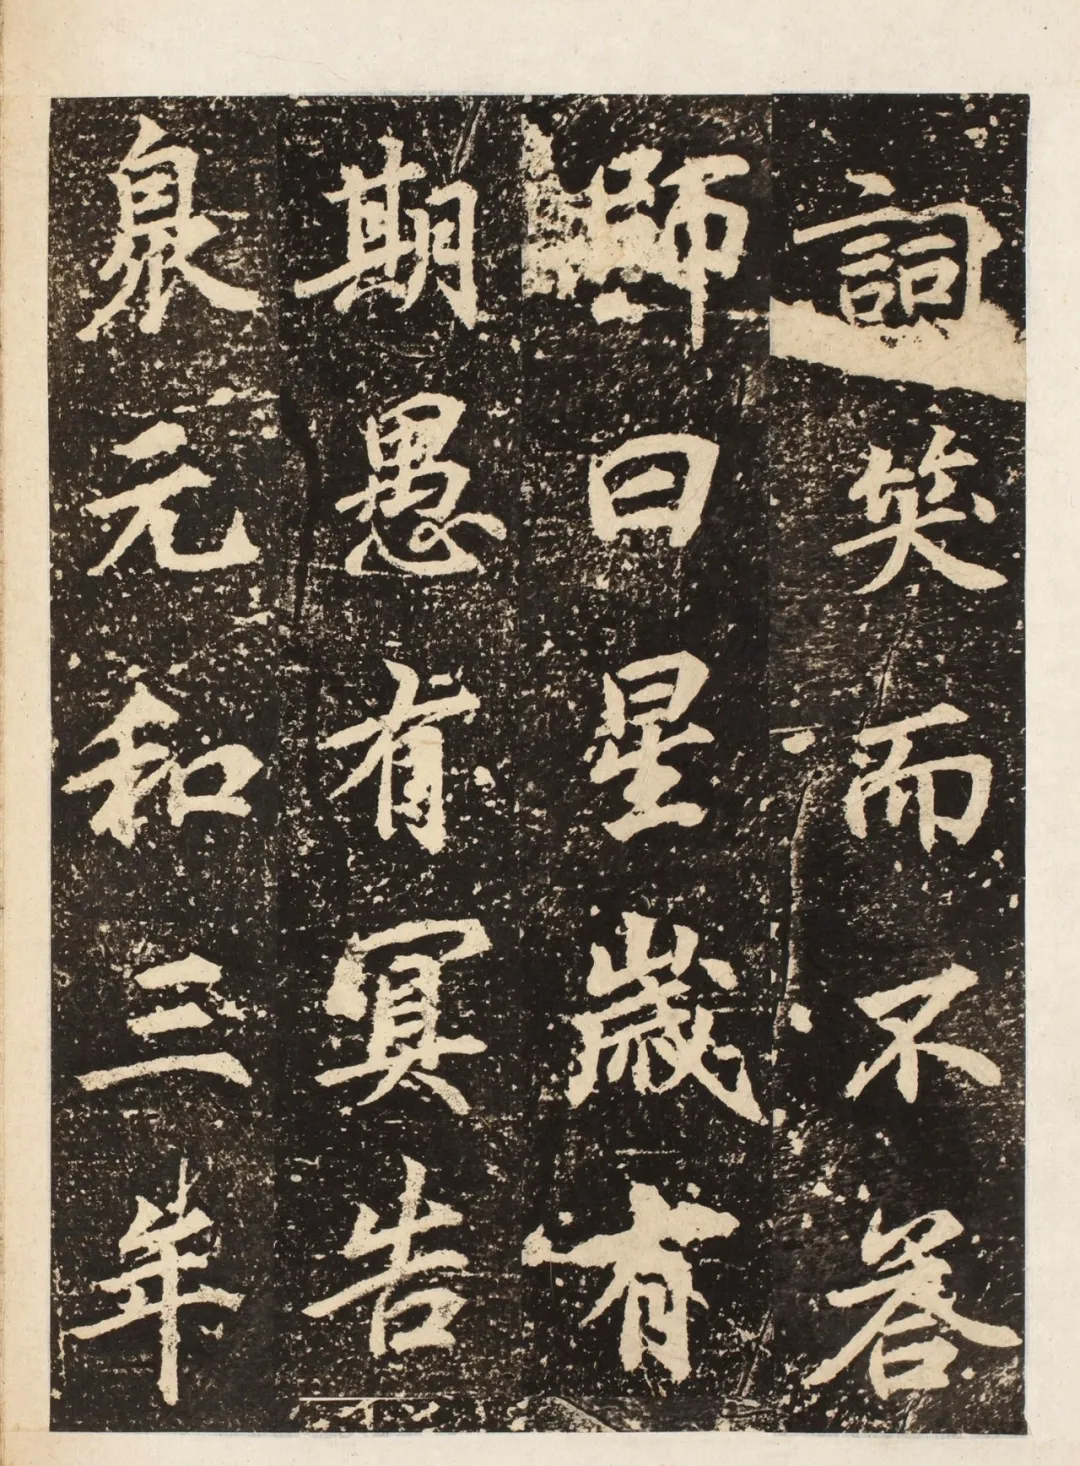 詞矣而不答
師曰星歲有
期愚有冥告
臮元和三年